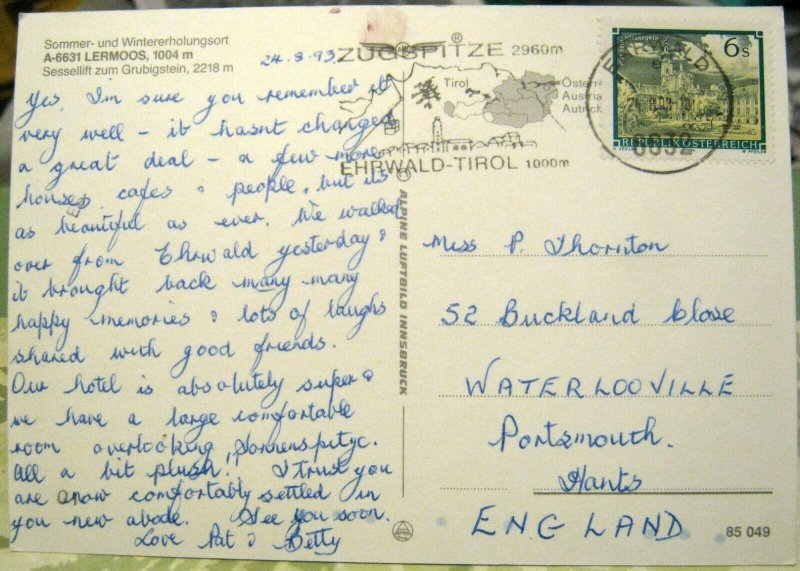 Sommer- und Wintererholungsort
A-6631 LERMOOS, 1004 m
Sessellift zum Grubigstein, 2218 m
24.8.93
Yes, I'm sure you remember it
very well - it hasnt changed
a great deal - a few more
houses, cafes & people, but its
as beautiful as ever. We walked
over from Ehrwald yesterday &
it brought back many many
happy memories & lots of laughs
shared with good friends.
Our hotel is absolutely super &
we have a large comfortable
room overlooking Sonnenspitze.
All a bit plush! I trust you
are now comfortably settled in
you new abode. See you soon.
Love Pat & Betty
ZUGSPITZE 2960m
®
Tirol
Österr
Austria
Autric
EHRWALD-TIROL 1000m
EHRWALD
6632
6s
REPUBLIK ÖSTERREICH
ALPINE LUFTBILD INNSBRUCK
Miss P. Thornton
52 Buckland Close
WATERLOOVILLE
Portsmouth.
Hants
ENGLAND
85 049